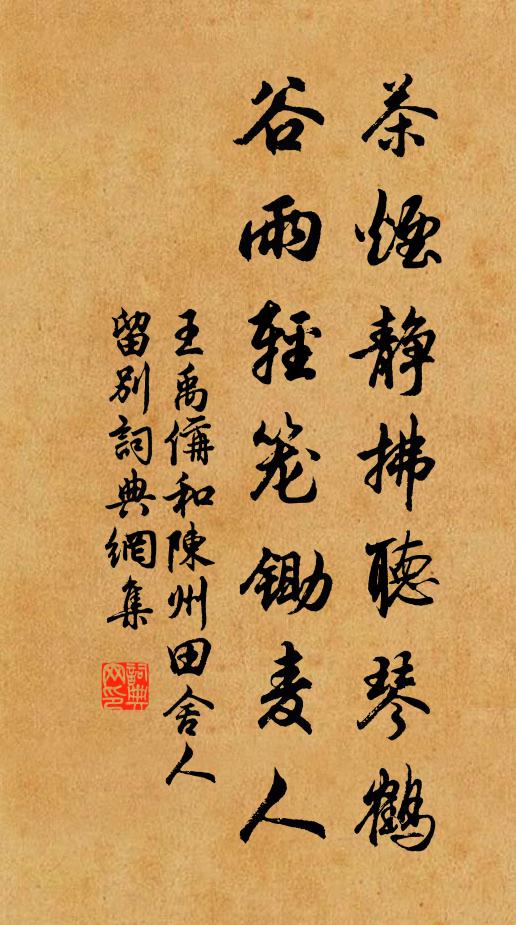 茶煙静拂聽琴鶴
谷雨輕笼鋤麦人
王禹偁和陳州田舍人
留別詞典網集
詞典网印